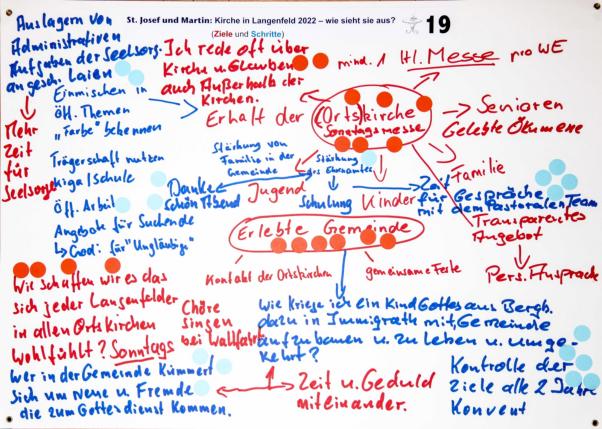 St. Josef und Martin: Kirche in Langenfeld 2022 – wie sieht sie aus?
(Ziele und Schritte)
19
Auslagern von
Administrativen
Aufgaben der Seelsorg.
an gesch. Laien
Mehr
Zeit
für
Seelsorge
Einmischen in
Öff. Themen
"Farbe" bekennen
Trägerschaft nutzen
Kiga/Schule
Öff. Arbeit
Angebote für Suchende
↳ God: für "Ungläubige"
Ich rede oft über
Kirche u. Glauben
auch Außerhalb der
Kirchen.
mind. 1 Hl. Messe pro WE
Erhalt der (Orts)kirche
Sonntagsmesse
Senioren
Gelebte Ökumene
Stärkung von
Familie in der
Gemeinde
Stärkung
des Ehrenamtes
Familie
Danke
schön Abend
Jugend
Schulung
Kinder
Zeit
für Gespräche
mit dem Pastoralen Team
Transparentes
Angebot
Pers. Ansprache
Erlebte Gemeinde
Kontakt der Ortskirchen
gemeinsame Feste
Wie schaffen wir es das
sich jeder Langenfelder
in allen Ortskirchen
wohlfühlt? Sonntags
Chöre
singen
bei Wallfahrt
Wie kriege ich ein Kind Gottes aus Bergh.
dazu in Immigrath mit Gemeinde
aufzubauen u. zu leben u. umge-
kehrt?
Wer in der Gemeinde kümmert
sich um neue u. Fremde
die zum Gottesdienst kommen.
Zeit u. Geduld
miteinander.
Kontrolle der
Ziele alle 2 Jahre
Konvent